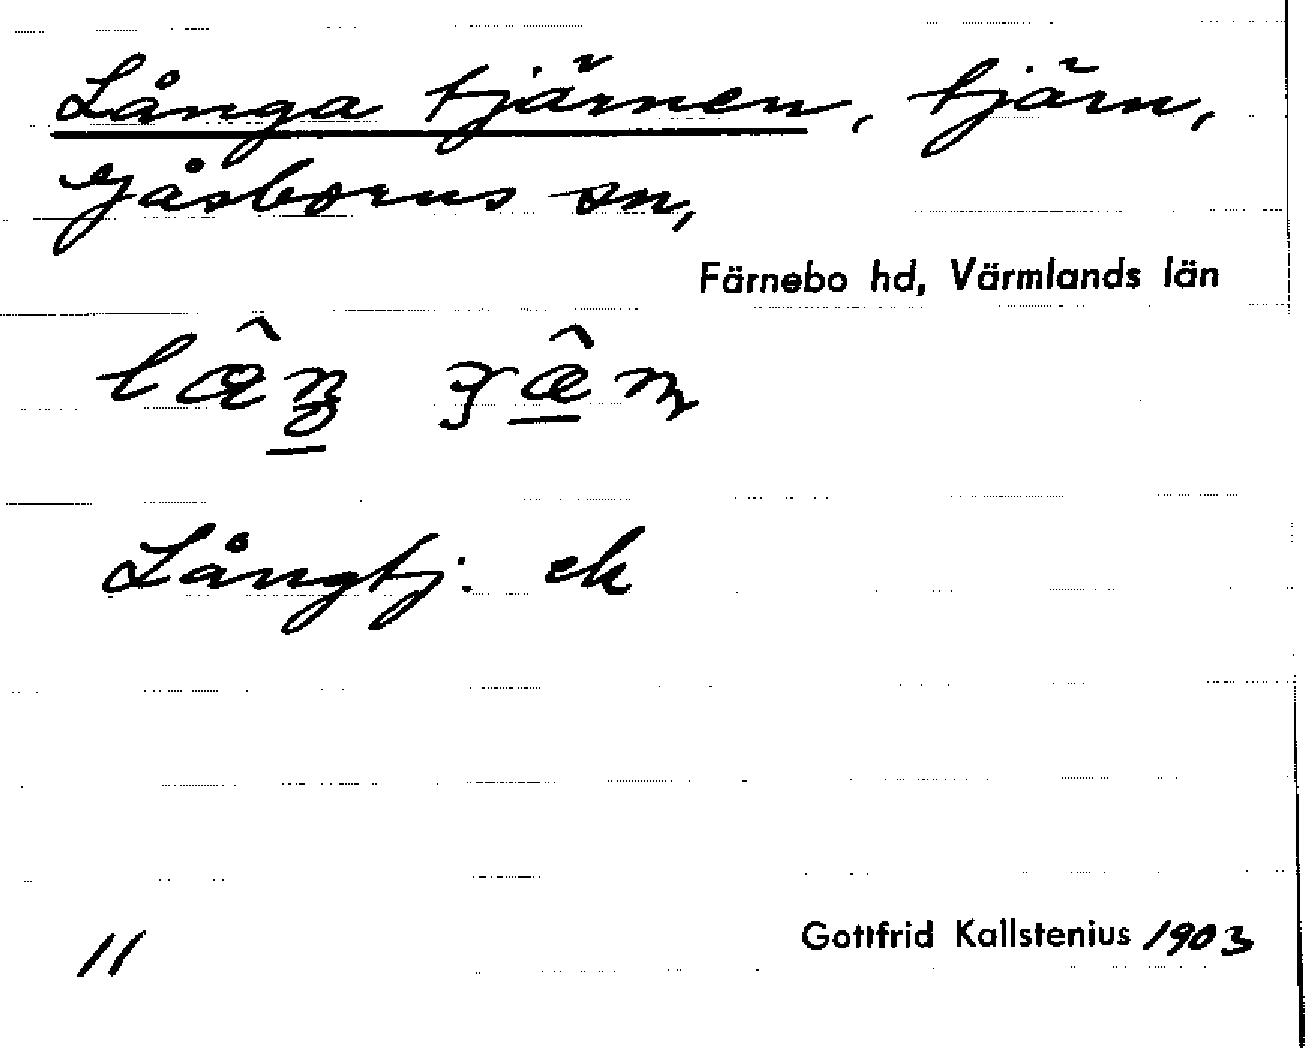 Långa tjärnen, tjärn,
Gåsborns sn,
Färnebo hd, Värmlands län
Långtj. ek
11
Gottfrid Kallstenius 1903